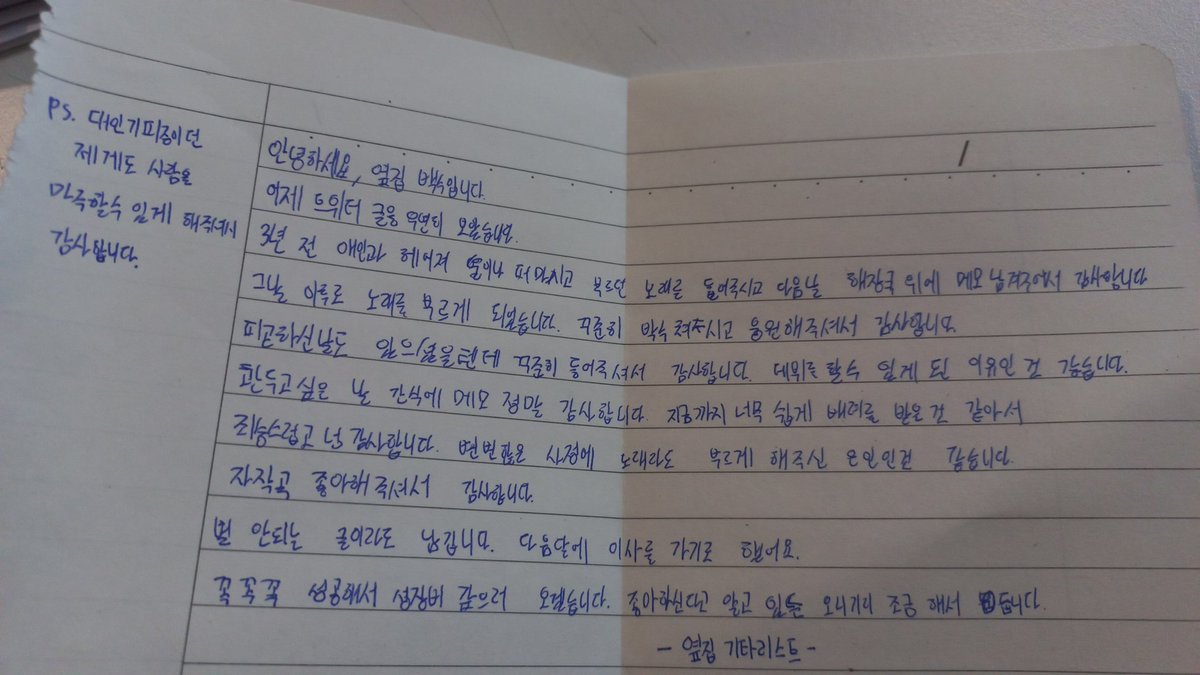 PS. 대인기피증이던
제게도 사람을
마주할수 있게 해주셔서
감사합니다.
안녕하세요, 옆집 백수입니다.
어제 트위터 글을 우연히 보았습니다.
3년 전 애인과 헤어져 술이나 퍼마시고 부르던 노래를 들어주시고 다음날 해장국 위에 메모 남겨주셔서 감사합니다
그날 이후로 노래를 부르게 되었습니다. 꾸준히 박수 쳐주시고 응원해주셔서 감사합니다.
피곤하신날도 있으셨을텐데 꾸준히 들어주셔서 감사합니다. 데뷔를 할수 있게 된 이유인 것 같습니다.
관두고싶은 날 간식에 메모 정말 감사합니다. 지금까지 너무 쉽게 배려를 받은 것 같아서
죄송스럽고 넘 감사합니다. 변변찮은 사정에 노래라도 부르게 해주신 은인인것 같습니다.
자작곡 좋아해주셔서 감사합니다.
별 안되는 글이라도 남깁니다. 다음달에 이사를 가기로 했어요.
꼭꼭꼭 성공해서 성장비 갚으러 오겠습니다. 좋아하신다고 알고 있는 오니기리 조금 해서 둡니다.
- 옆집 기타리스트 -